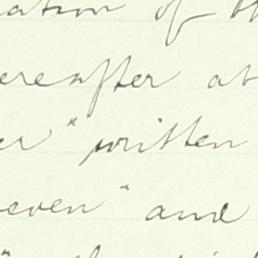 ation of th
ereafter at
er "written
even" and